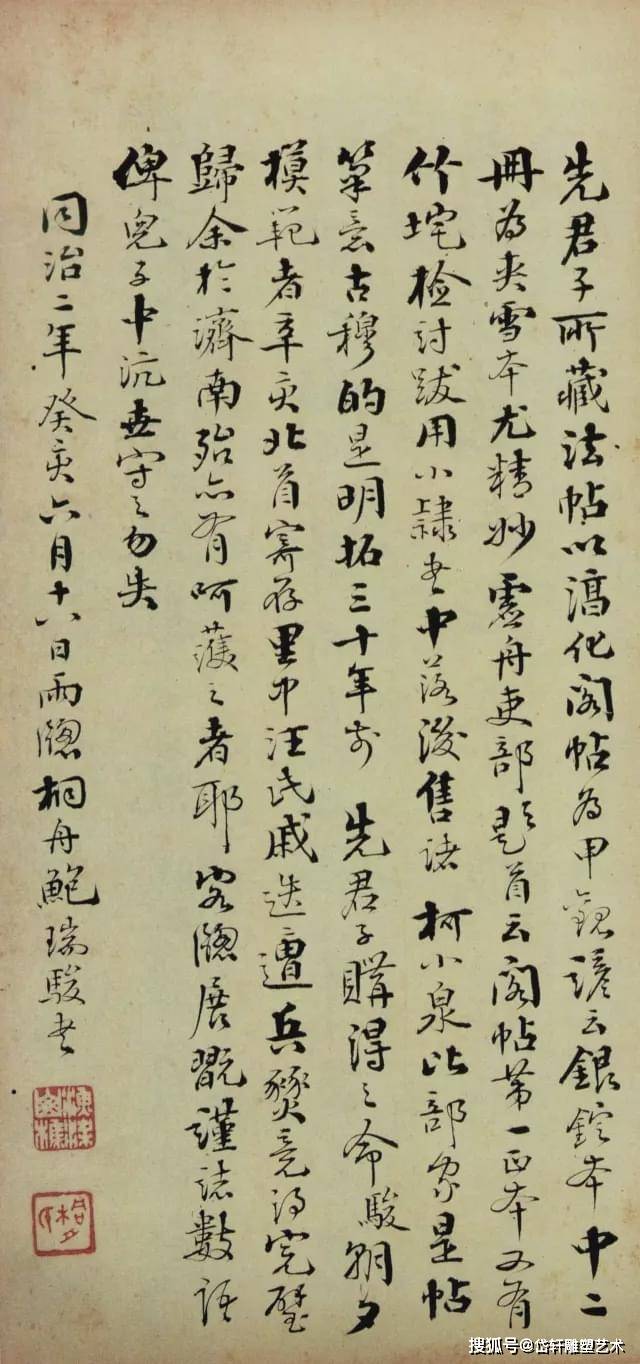 先君子所藏法帖以淳化閣帖為甲觀諺云銀錠本中二
冊為夾雪本尤精妙虛舟吏部題首云閣帖第一正本又有
竹垞檢討跋用小隸書中落後售諸柯小泉比部家是帖
筆意古穆的是明拓三十年前 先君子購得之命駿朝夕
模範者辛亥北首寄存里中汪氏戚迭遭兵燹竟得完璧
歸余於濟南殆亦有呵護之者耶客牕展翫謹誌數語
俾兒子中沆世守之勿失
同治二年癸亥六月十八日雨牕桐舟鮑瑞駿書
搜狐号@岱轩雕塑艺术